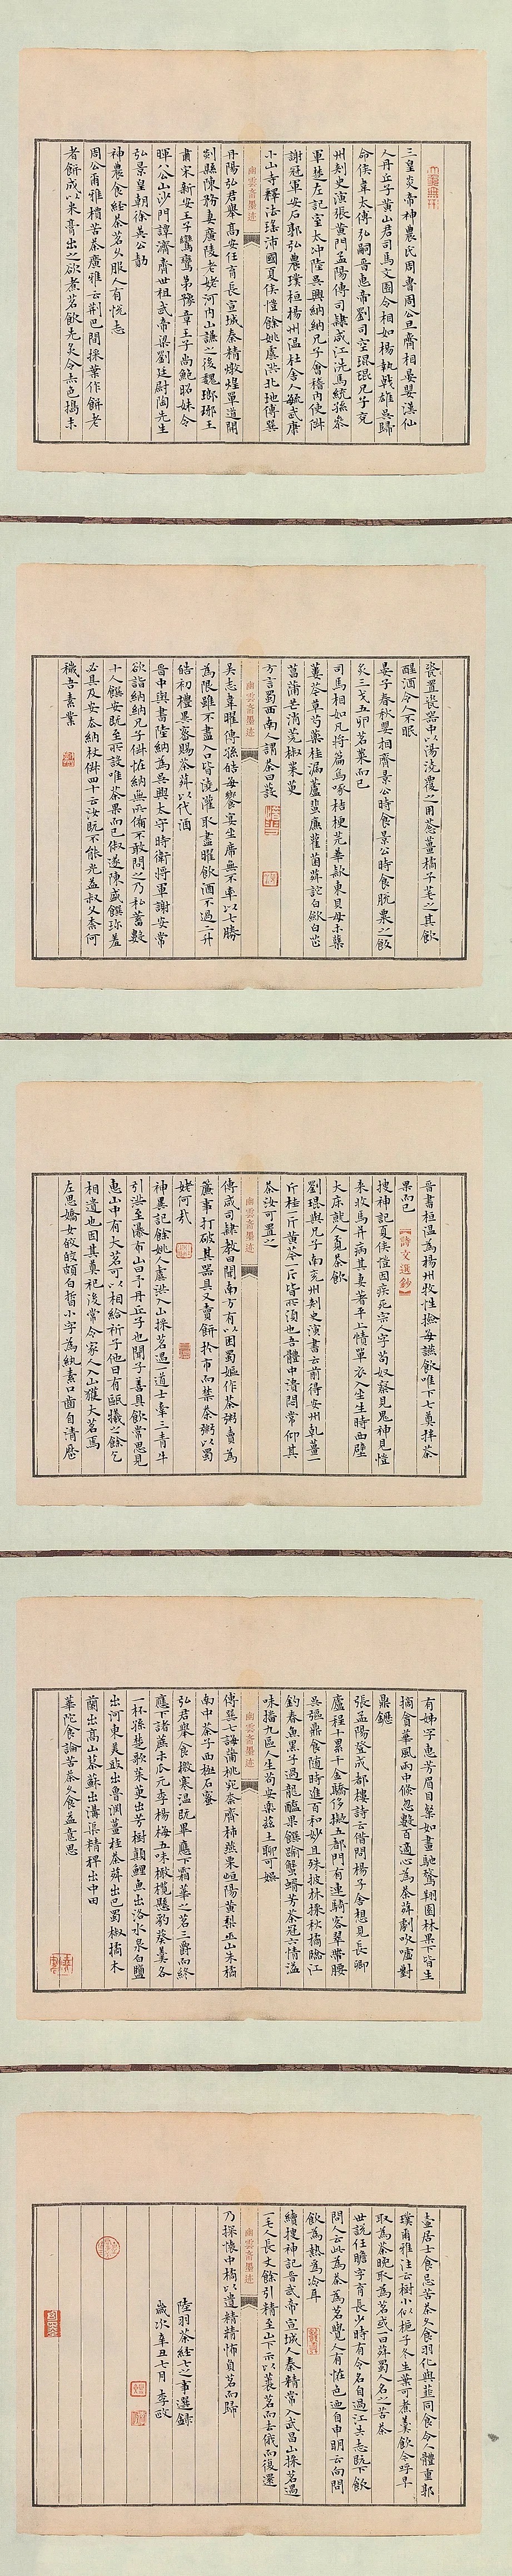 三皇炎帝神農氏周魯周公旦齊相晏嬰漢仙
人丹丘子黃山君司馬文園令相如楊執戟雄吳歸
命侯韋太傅弘嗣晉惠帝劉司空琨琨兄子兗
州刺史演張黃門孟陽傅司隸咸江洗馬統孫參
軍楚左記室太沖陸吳興納納兄子會稽內史俶
謝冠軍安石郭弘農璞桓楊州溫杜舍人毓武康
小山寺釋法瑤沛國夏侯愷餘姚虞洪北地傅巽
幽雲齋墨迹
丹陽弘君舉高安任育長宣城秦精燉煌單道開
剡縣陳務妻廣陵老姥河內山謙之後魏瑯瑯王
肅宋新安王子鸞鸞弟豫章王子尚鮑昭妹令
暉八公山沙門譚濟齊世祖武帝梁劉廷尉陶先生
弘景皇朝徐英公勣
神農食經茶茗久服人有悅志
周公爾雅檟苦荼廣雅云荊巴間採葉作餅葉老
者餅成以米膏出之欲煮茗飲先炙令赤色搗末
置瓷器中以湯澆覆之用蔥薑橘子芼之其飲
醒酒令人不眠
晏子春秋嬰相齊景公時食脫粟之飯
炙三戈五卯茗菜而已
司馬相如凡將篇烏啄桔梗芫華款東貝母木蘗
蔞芩草芍藥桂漏蘆蜚廉雚菌荈詫白斂白芷
菖蒲芒消莞椒茱萸
方言蜀西南人謂茶曰蔎
幽雲齋墨迹
吳志韋曜傳孫皓每饗宴坐席無不率以七勝
為限雖不盡入口皆澆灌取盡曜飲酒不過二升
皓初禮異密賜茶荈以代酒
晉中興書陸納為吳興太守時衛將軍謝安常
欲詣納納兄子俶怪納無所備不敢問之乃私蓄數
十人饌安既至所設唯茶果而已俶遂陳盛饌珍羞
必具及安去納杖俶四十云汝既不能光益叔父柰何
穢吾素業
晉書桓溫為揚州牧性儉每讌飲唯下七奠拌茶
果而已
【詩文選鈔】
搜神記夏侯愷因疾死宗人字苟奴察見鬼神見愷
來收馬并病其妻著平上幘單衣入坐生時西壁
大床就人覓茶飲
劉琨與兄子南兗州刺史演書云前得安州乾薑一
斤桂一斤黃芩一斤皆所須也吾體中潰悶常仰真
茶汝可置之
幽雲齋墨迹
傅咸司隸教曰聞南方有以困蜀嫗作茶粥賣為
簾事打破其器具又賣餅於市而禁茶粥以蜀
姥何哉
神異記餘姚人虞洪入山採茗遇一道士牽三青牛
引洪至瀑布山曰予丹丘子也聞子善具飲常思見
惠山中有大茗可以相給祈子他日有甌犧之餘乞
相遺也因其奠祀後常令家人入山獲大茗焉
左思嬌女皎皎頗白皙小字為紈素口齒自清歷
有姊字惠芳眉目粲如畫馳鶩翔園林果下皆生
摘貪華風雨中倏忽數百適心為茶荈劇吹噓對
鼎䥶
張孟陽登成都樓詩云借問楊子舍想見長卿
廬程卓累千金驕侈擬五都門有連騎客翠帶腰
吳鉤鼎食隨時進百和妙且殊披林採秋橘臨江
釣春魚黑子過龍醢果饌踰蟹蝑芳茶冠六情溢
味播九區人生苟安樂茲土聊可娛
幽雲齋墨迹
傅巽七誨蒲桃宛柰齊柿燕栗峘陽黃梨巫山朱橘
南中茶子西極石蜜
弘君舉食檄寒溫既畢應下霜華之茗三爵而終
應下諸蔗木瓜元李楊梅五味橄欖懸豹葵羹各
一杯孫楚歌茱萸出芳樹顛鯉魚出洛水泉白鹽
出河東美豉出魯淵薑桂茶荈出巴蜀椒橘木
蘭出高山蓼蘇出溝渠精稗出中田
華佗食論苦茶久食益意思
壺居士食忌苦茶久食羽化與韮同食令人體重郭
璞爾雅注云樹小似梔子冬生葉可煮羹飲今呼早
取為茶晚取為茗或一曰荈蜀人名之苦茶
世說任瞻字育長少時有令名自過江失志既下飲
問人云此為茶為茗覺人有怪色乃自申明云向問
飲為熱為冷耳
續搜神記晉武帝宣城人秦精常入武昌山採茗遇
一毛人長丈餘引精至山下示以叢茗而去俄而復還
幽雲齋墨迹
乃探懷中橘以遺精精怖負茗而歸
陸羽茶經七之事選錄
歲次辛丑七月 李政